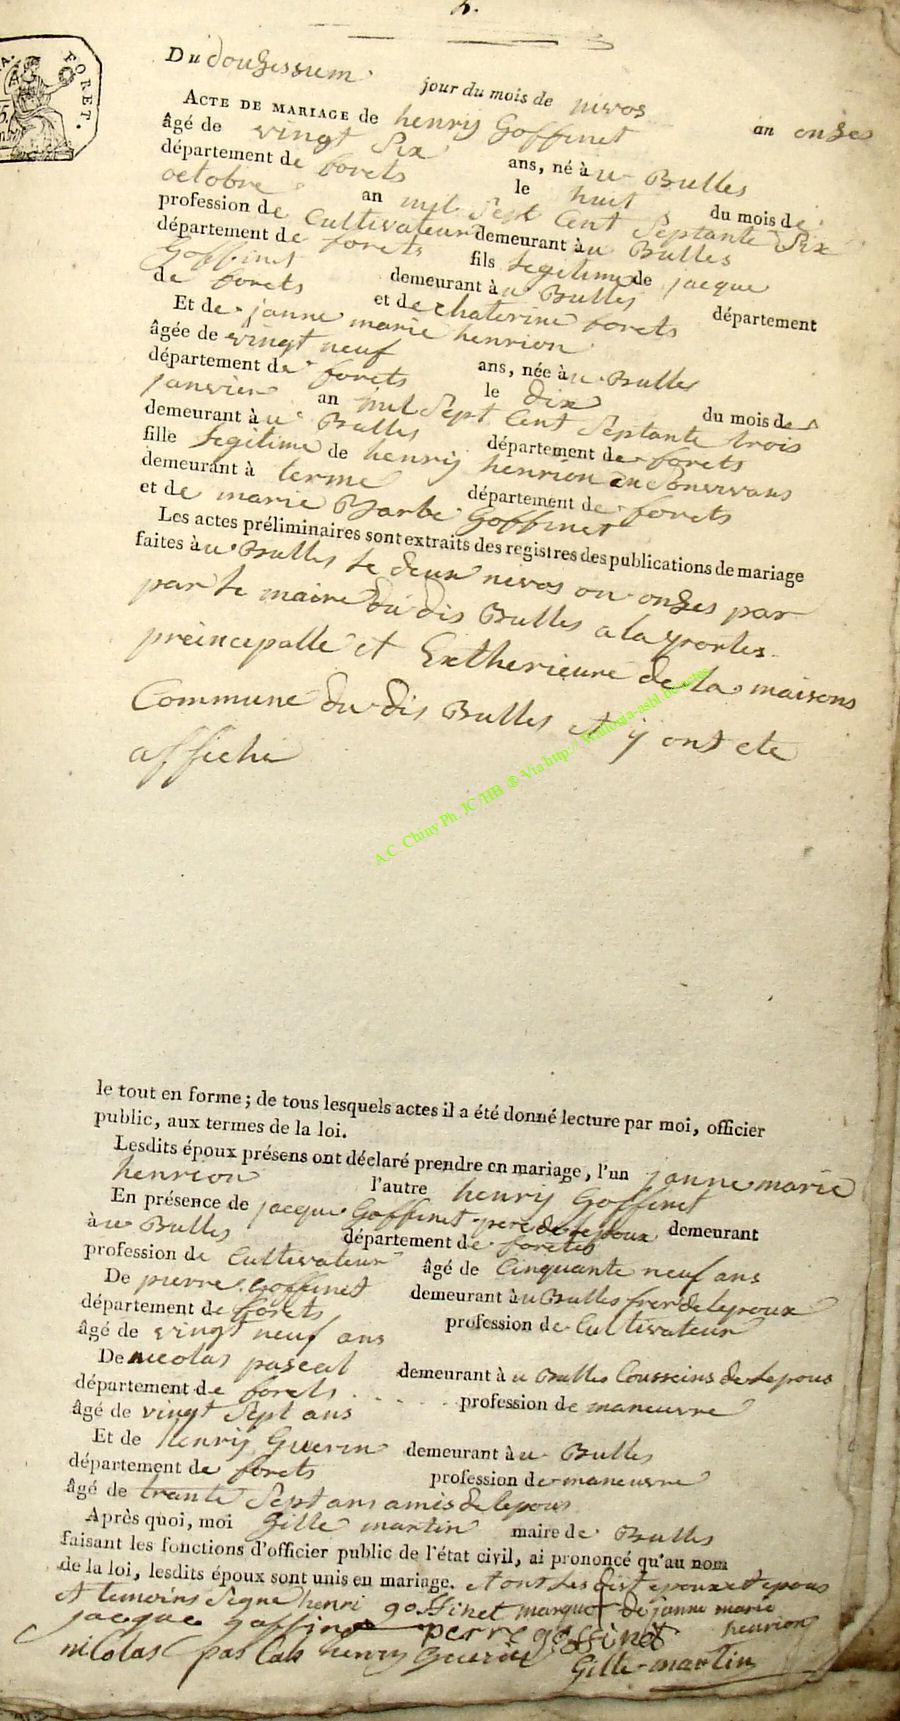 2.
FORET.
Du douzessum jour du mois de nivos an onze
ACTE DE MARIAGE de henrij Goffinet
âgé de vingt Six ans, né àu Bulles
département de forets le huit du mois de
octobre an mil Sept Cent Septante Six
profession de Cultivateur demeurant àu Bulles
département de forets fils legitime de jacque
Goffinet demeurant àu Bulles département
de forets et de chaterine forets
Et de janne marie henrion
âgée de vingt neuf ans, née àu Bulles
département de forets le dix du mois de
janvier an mil Sept Cent Septante trois
demeurant àu Bulles département de forets
fille legitime de henrij henrion en
demeurant à terme département de forets
et de marie Barbe Goffinet
Les actes préliminaires sont extraits des registres des publications de mariage
faites àu Bulles le deux nivos on onzes par
par le maire du dis Bulles a la portes
preincepalle et Extherieure de la maisons
Commune du dis Bulles et ij ont ete
affiche
A.C. Chiny Ph. JC/HB ® Via http://
le tout en forme ; de tous lesquels actes il a été donné lecture par moi, officier
public, aux termes de la loi.
Lesdits époux présens ont déclaré prendre en mariage, l'un janne marie
henrion l'autre henrij Goffinet
En présence de jacque Goffinet pere de lepoux demeurant
àu Bulles département de forets
profession de Cultivateur âgé de Cinquante neuf ans
De pierre goffinet demeurant àu Bulles frer de lepoux
département de forets profession de Cultivateur
âgé de vingt neuf ans
De nicolas pascal demeurant à u Bulles Cousseins de lepous
département de forets profession de maneuvre
âgé de vingt Sept ans
Et de henrij Guerin demeurant àu Bulles
département de forets profession de maneuvre
âgé de trante Sept ans amis de lepous
Après quoi, moi Gille martin maire de Bulles
faisant les fonctions d'officier public de l'état civil, ai prononcé qu'au nom
de la loi, lesdits époux sont unis en mariage. et ont les dist epoux et epous
et temoins Signe henri goffinet marque + de janne marie
jacque goffine perre goffinet henrion
nicolas pascals henrij Guerin Gille martin